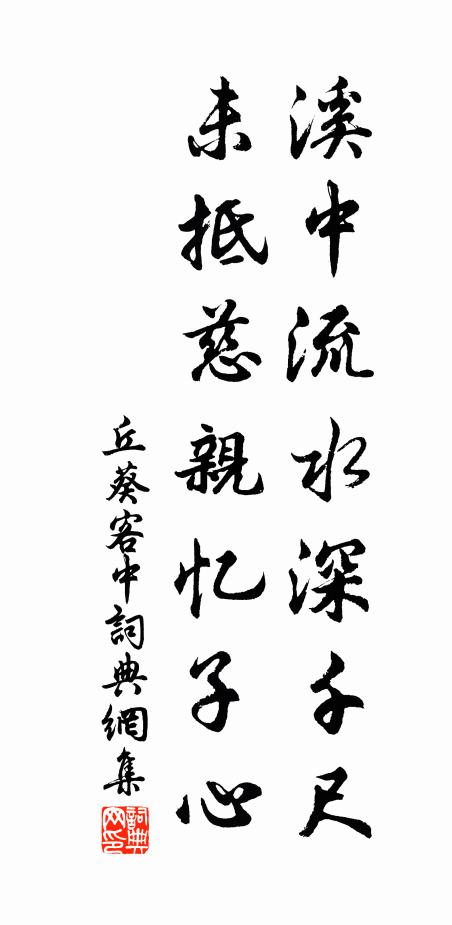 溪中流水深千尺
未抵慈親忆子心
丘葵客中詞典網集
詞典網印